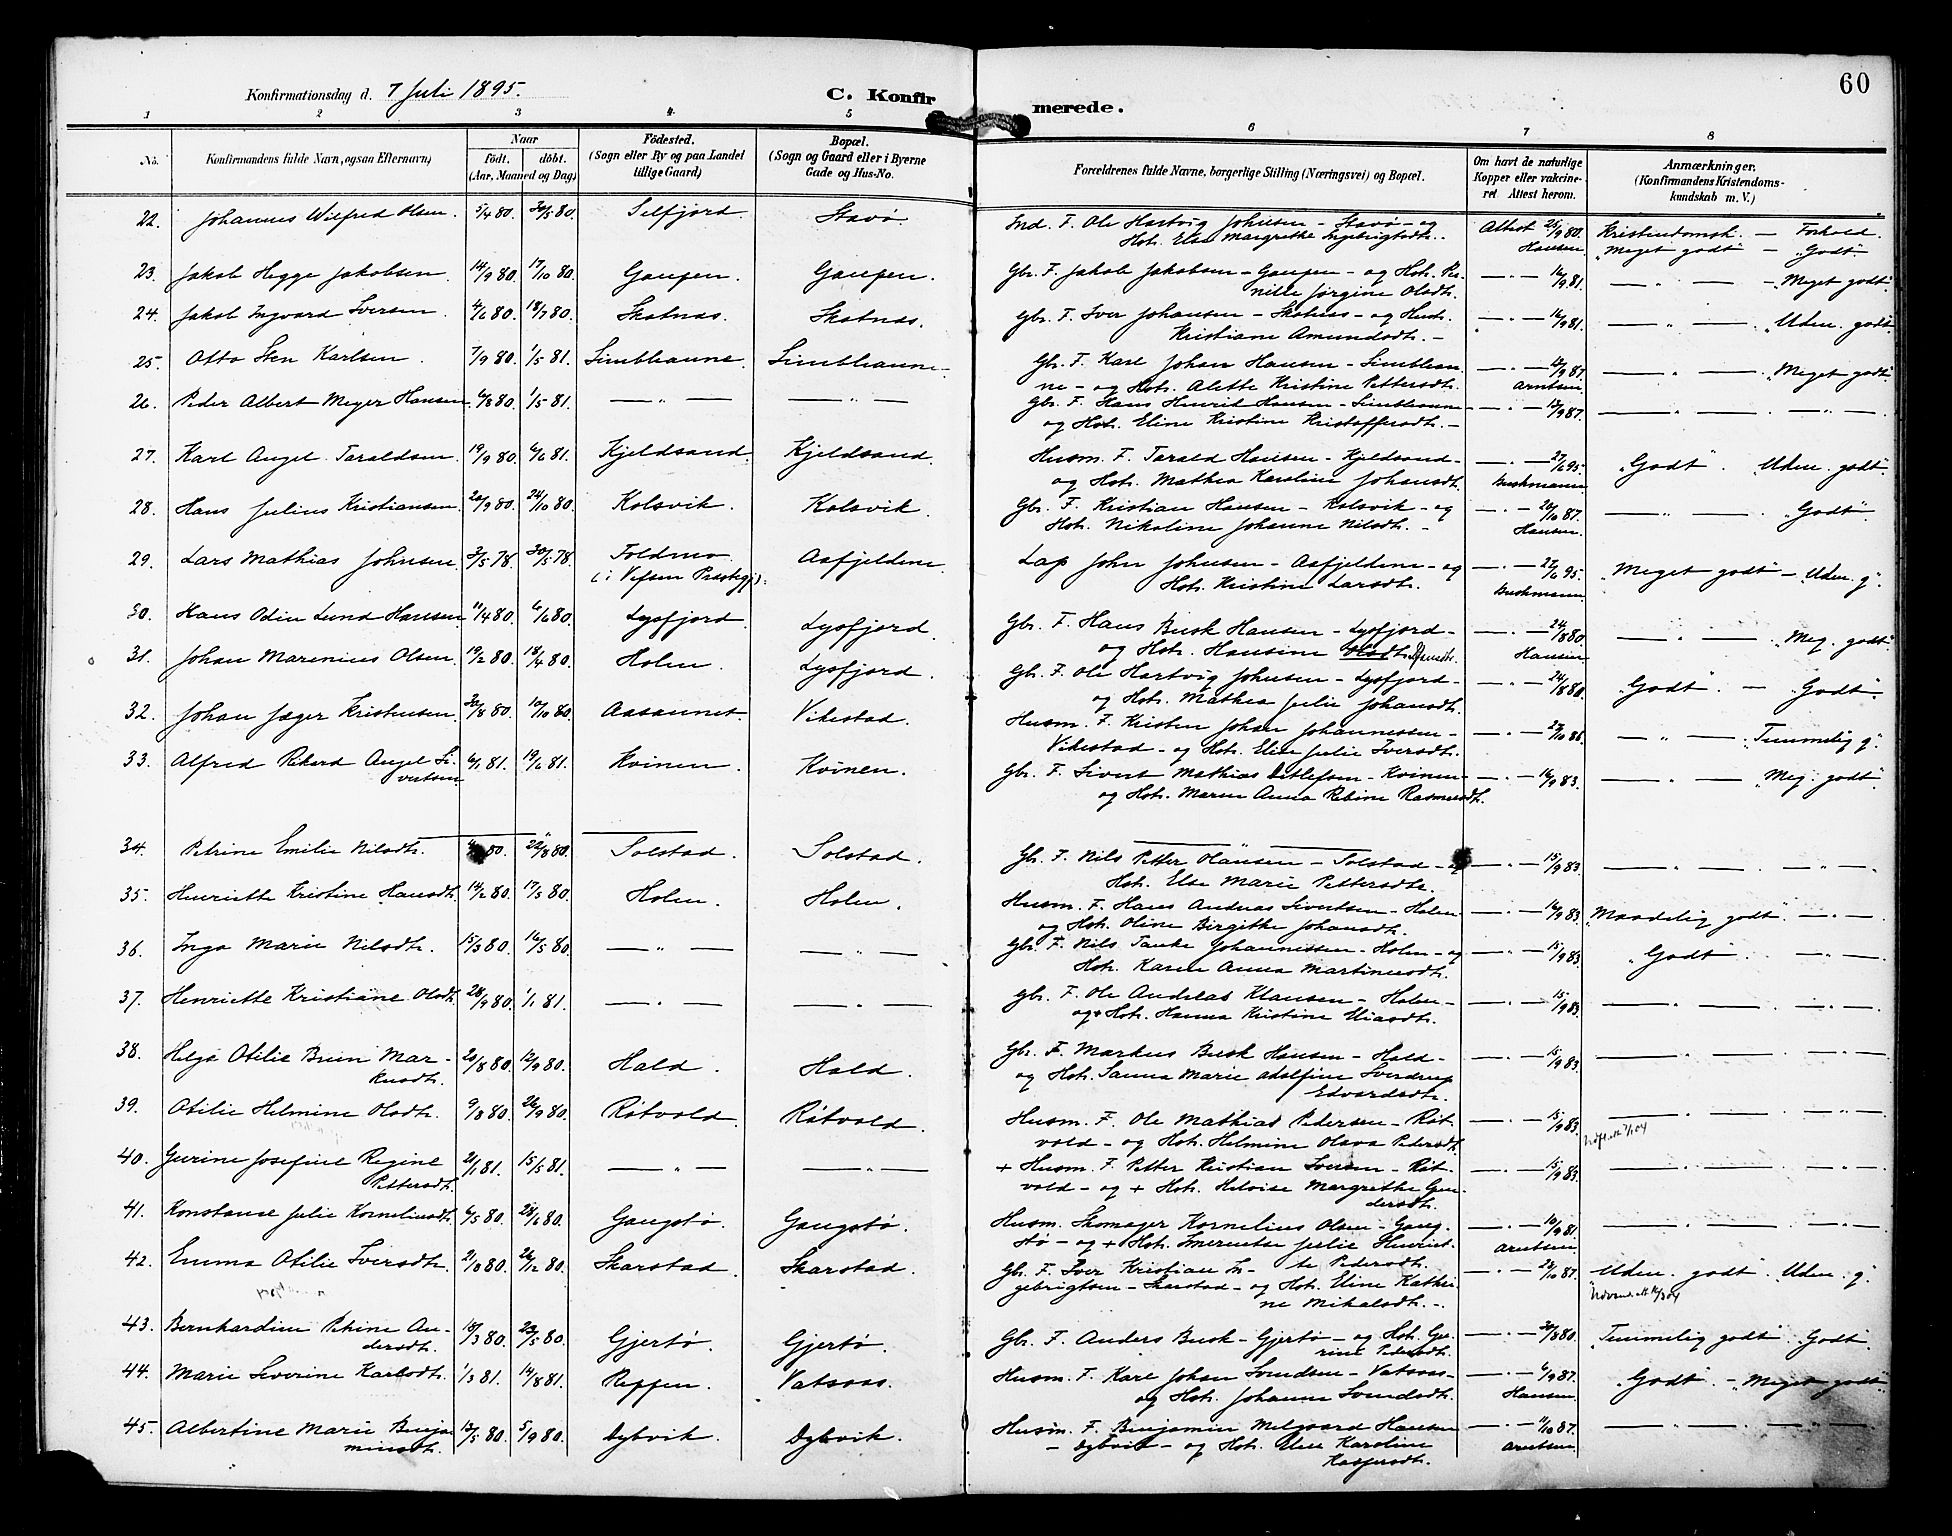 60
Konfirmationsdag d. 7 Juli 1895.
C. Konfirmerede.
1 2 3 4. 5 6 7 8
No. Konfirmandens fulde Navn, ogsaa Efternavn)
Naar
født. døbt.
(Aar, Maaned og Dag)
Fødested.
(Sogn eller By og paa Landet
tillige Gaard)
Bopæl.
(Sogn og Gaard eller i Byerne
Gade og Hus-No.
Forældrenes fulde Navne, borgerlige Stilling (Næringsvei) og Bopæl.
Om havt de naturlige
Kopper eller vakcine-
ret Attest herom.
Anmærkninger.
(Konfirmandens Kristendoms-
kundskab m. V.)
22. Johannes Wilfred Olsen. 5/4 80. 30/5 80. Selfjord. Stavø. Ind. F. Ole Hartvig Johnsen - Stavø - og Attest 25/9 80. Kristendomsk. — Forhold.
Hst. Else Margrethe Ingebrigtsdt. - Hansen. "Meget godt" — "Godt".
23. Jakob Hegge Jakobsen. 14/9 80. 17/10 80. Gaupen. Gaupen. Gbr. F. Jakob Jakobsen - Gaupen - og Hst. Per- — " — 16/9 81. — " — — "Meget godt".
nille Jørgine Olsdt.
24. Jakob Ingvard Iversen. 4/6 80. 18/7 80. Skotnæs. Skotnæs. Gbr. F. Iver Johansen - Skotnæs - og Hust. — " — 16/9 81. — " — "Uden. godt".
Kristiane Amundsdt. -
25. Otto Sten Karlsen. 7/9 80. 1/5 81. Simbleaune. Simbleaune. Gbr. F. Karl Johan Hansen - Simbleau- — " — 12/9 87 — " — "Meget godt".
ne - og Hst. Alette Kristine Pettersdt. Arntsen
26. Peder Albert Meyer Hansen. 6/8 80. 1/5 81. — " — — " — Gbr. F. Hans Henrik Hansen - Simbleaune - — " — 13/9 87. — " — — " —
og Hst. Eline Kristine Kristoffersdt. -
27. Karl Angel Taraldsen. 19/9 80. 6/6 81. Kjeldsand. Kjeldsand. Husm. F. Tarald Hansen - Kjeldsand - — " — 27/6 95. "Godt". "Uden. godt".
og Hst. Mathea Karoline Johansdt. Buchmann.
28. Hans Julius Kristiansen. 20/9 80. 24/10 80. Kolsvik. Kolsvik. Gbr. F. Kristian Hansen - Kolsvik - og — " — 20/10 87. — " — "Godt".
Hst. Nikoline Johanne Nilsdt. - Hansen.
29. Lars Mathias Johnsen. 3/5 78. 30/5 78. Toldmo Aafjeldene Lap John Johnsen - Aafjeldene - og — " — 22/6 95. "Meget godt - "Uden. g".
(i Vefsen Præstegj). Hst. Kristine Larsdt. Buchmann.
30. Hans Odin Lund Hansen 11/4 80. 6/6 80. Lysfjord. Lysfjord. Gbr. F. Hans Busk Hansen - Lysfjord - — " — 24/8 80 — " — "Meg. godt".
og Hst. Hansine Olsdt. Hansen
31. Johan Marenius Olsen. 19/2 80. 18/4 80. Holm. Lysfjord. Gbr. F. Ole Hartvig Johnsen - Lysfjord - — " — 24/8 80. "Godt". — "Godt".
og Hst. Mathea Julie Johansdt.
32. Johan Jæger Kristensen. 30/8 80. 10/10 80. Aasaunet. Vikestad. Husm. F. Kristen Johan Johannessen - — " — — " — "Temmelig g".
Vikestad - og Hst. Elise Julie Iversdt.
33. Alfred Rikard Angel Si- 6/1 81. 19/6 81. Kvinen. Kvinen. Gbr. F. Sivert Mathias Detlefsen - Kvinen - — " — 16/9 83. — " — "Meg. godt".
vertsen og Hst. Maren Anna Rebine Rasmusdt.
34. Petrine Emilie Nilsdt. 80. 22/8 80. Solstad. Solstad. Gbr. F. Nils Petter Hansen - Solstad - og — " — 15/9 83. — " — — " —
Hst. Else Marie Pettersdt.
35. Henriette Kristine Hansdt. 14/2 80. 17/5 80. Holm. Holm. Husm. F. Hans Andreas Sivertsen - Holm - — " — 16/9 83. "Maadelig godt". — " —
og Hst. Oline Birgitte Johansdt.
36. Inga Marie Nilsdt. 15/3 80. 16/5 80. — " — — " — Gbr. F. Nils Tanke Johannessen - Holm - og — " — 15/9 83. "Godt". — " —
Hst. Karen Anna Martinusdt.
37. Henriette Kristiane Olsdt. 28/9 80. 1/1 81. — " — — " — Gbr. F. Ole Andreas Klausen - Holm - — " — 15/9 83. — " — — " —
og + Hst. Hanna Kristine Eliasdt.
38. Helga Otilie Brun Mar- 20/8 80. 12/9 80. Hald. Hald. Gbr. F. Markus Busk Hansen - Hald - — " — 15/9 83. — " — — " —
kusdt. og Hst. Sanna Marie Adolfine Sverdrup
Edvardsdt.
39. Otilie Helmine Olsdt. 9/8 80. 26/9 80. Røtvold. Røtvold. Husm. F. Ole Mathias Pedersen - Røt- — " — 15/9 83. — " — — " —
vold - og Hst. Helmine Olava Pedersdt.
40. Gurine Josefine Regine 21/1 81. 15/5 81. — " — — " — + Husm. F. Petter Kristian Iversen - Røt- — " — 15/9 83. — " — — " —
Pettersdt. vold - og + Hst. Heloise Margrethe Gun-
dersdt.
41. Konstanse Julie Korneliusdt. 6/5 80. 28/6 80. Gangstø. Gangstø. Husm. Skomager Kornelius Olsen - Gang- — " — 10/9 81. — " — — " —
stø - og + Hst. Imerentse Julie Henriet- Arntsen
te Pedersdt.
42. Emma Otilie Iversdt. 21/8 80. 26/12 80. Skarstad. Skarstad. Gbr. F. Iver Kristian In- — " — 28/10 87. "Uden. godt". "Uden. g".
gebrigtsen - Skarstad - og Hst. Eline Kathri-
ne Mikalsdt. -
43. Bernhardine Petrine An- 18/3 80. 23/5 80. Gjertø. Gjertø. Gbr. F. Anders Busk - Gjertø - og Hst. Gu- — " — 20/8 80. "Temmelig godt". "Godt".
dersdt. rine Pedersdt.
44. Marie Severine Karlsdt. 1/3 81. 14/8 81. Reppen. Vatsaas. Husm. F. Karl Johan Svendsen - Vatsaas - — " — 6/9 87. "Godt". - "Meget godt".
og Hst. Johanna Svendsdt. Hansen
45. Albertine Marie Benja- 13/5 80. 5/9 80. Dybvik. Dybvik. Husm. F. Benjamin Melgaard Hansen — " — 11/10 87. — " — — " —
minsdt. - Dybvik - og Hst. Elen Karoline Arntsen
Kaspersdt.